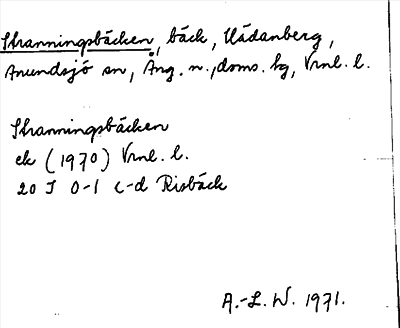 Stranningsbäcken, bäck, Uådanberg,
Anundsjö sn, Ång. n., doms. hg, Vrnl. l.
Stranningsbäcken
ek (1970) Vrnl. l.
20 J 0-1 c-d Risbäck
A.-L. W. 1971.